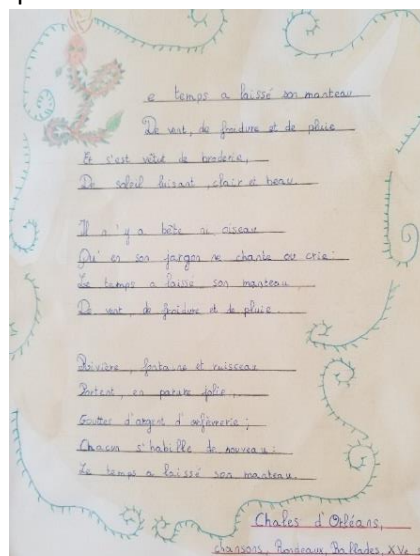 Le temps a laissé son manteau
De vent, de froidure et de pluie
Et s'est vêtu de broderie,
De soleil luisant, clair et beau.
Il n'y a bête ni oiseau
Qu'en son jargon ne chante ou crie :
Le temps a laissé son manteau
De vent, de froidure et de pluie.
Rivière, fontaine et ruisseau
Portent, en parure jolie,
Gouttes d'argent d'orfèvrerie ;
Chacun s'habille de nouveau :
Le temps a laissé son manteau.
Chales d'Orléans,
chansons, Rondeaux, Ballades, XVe